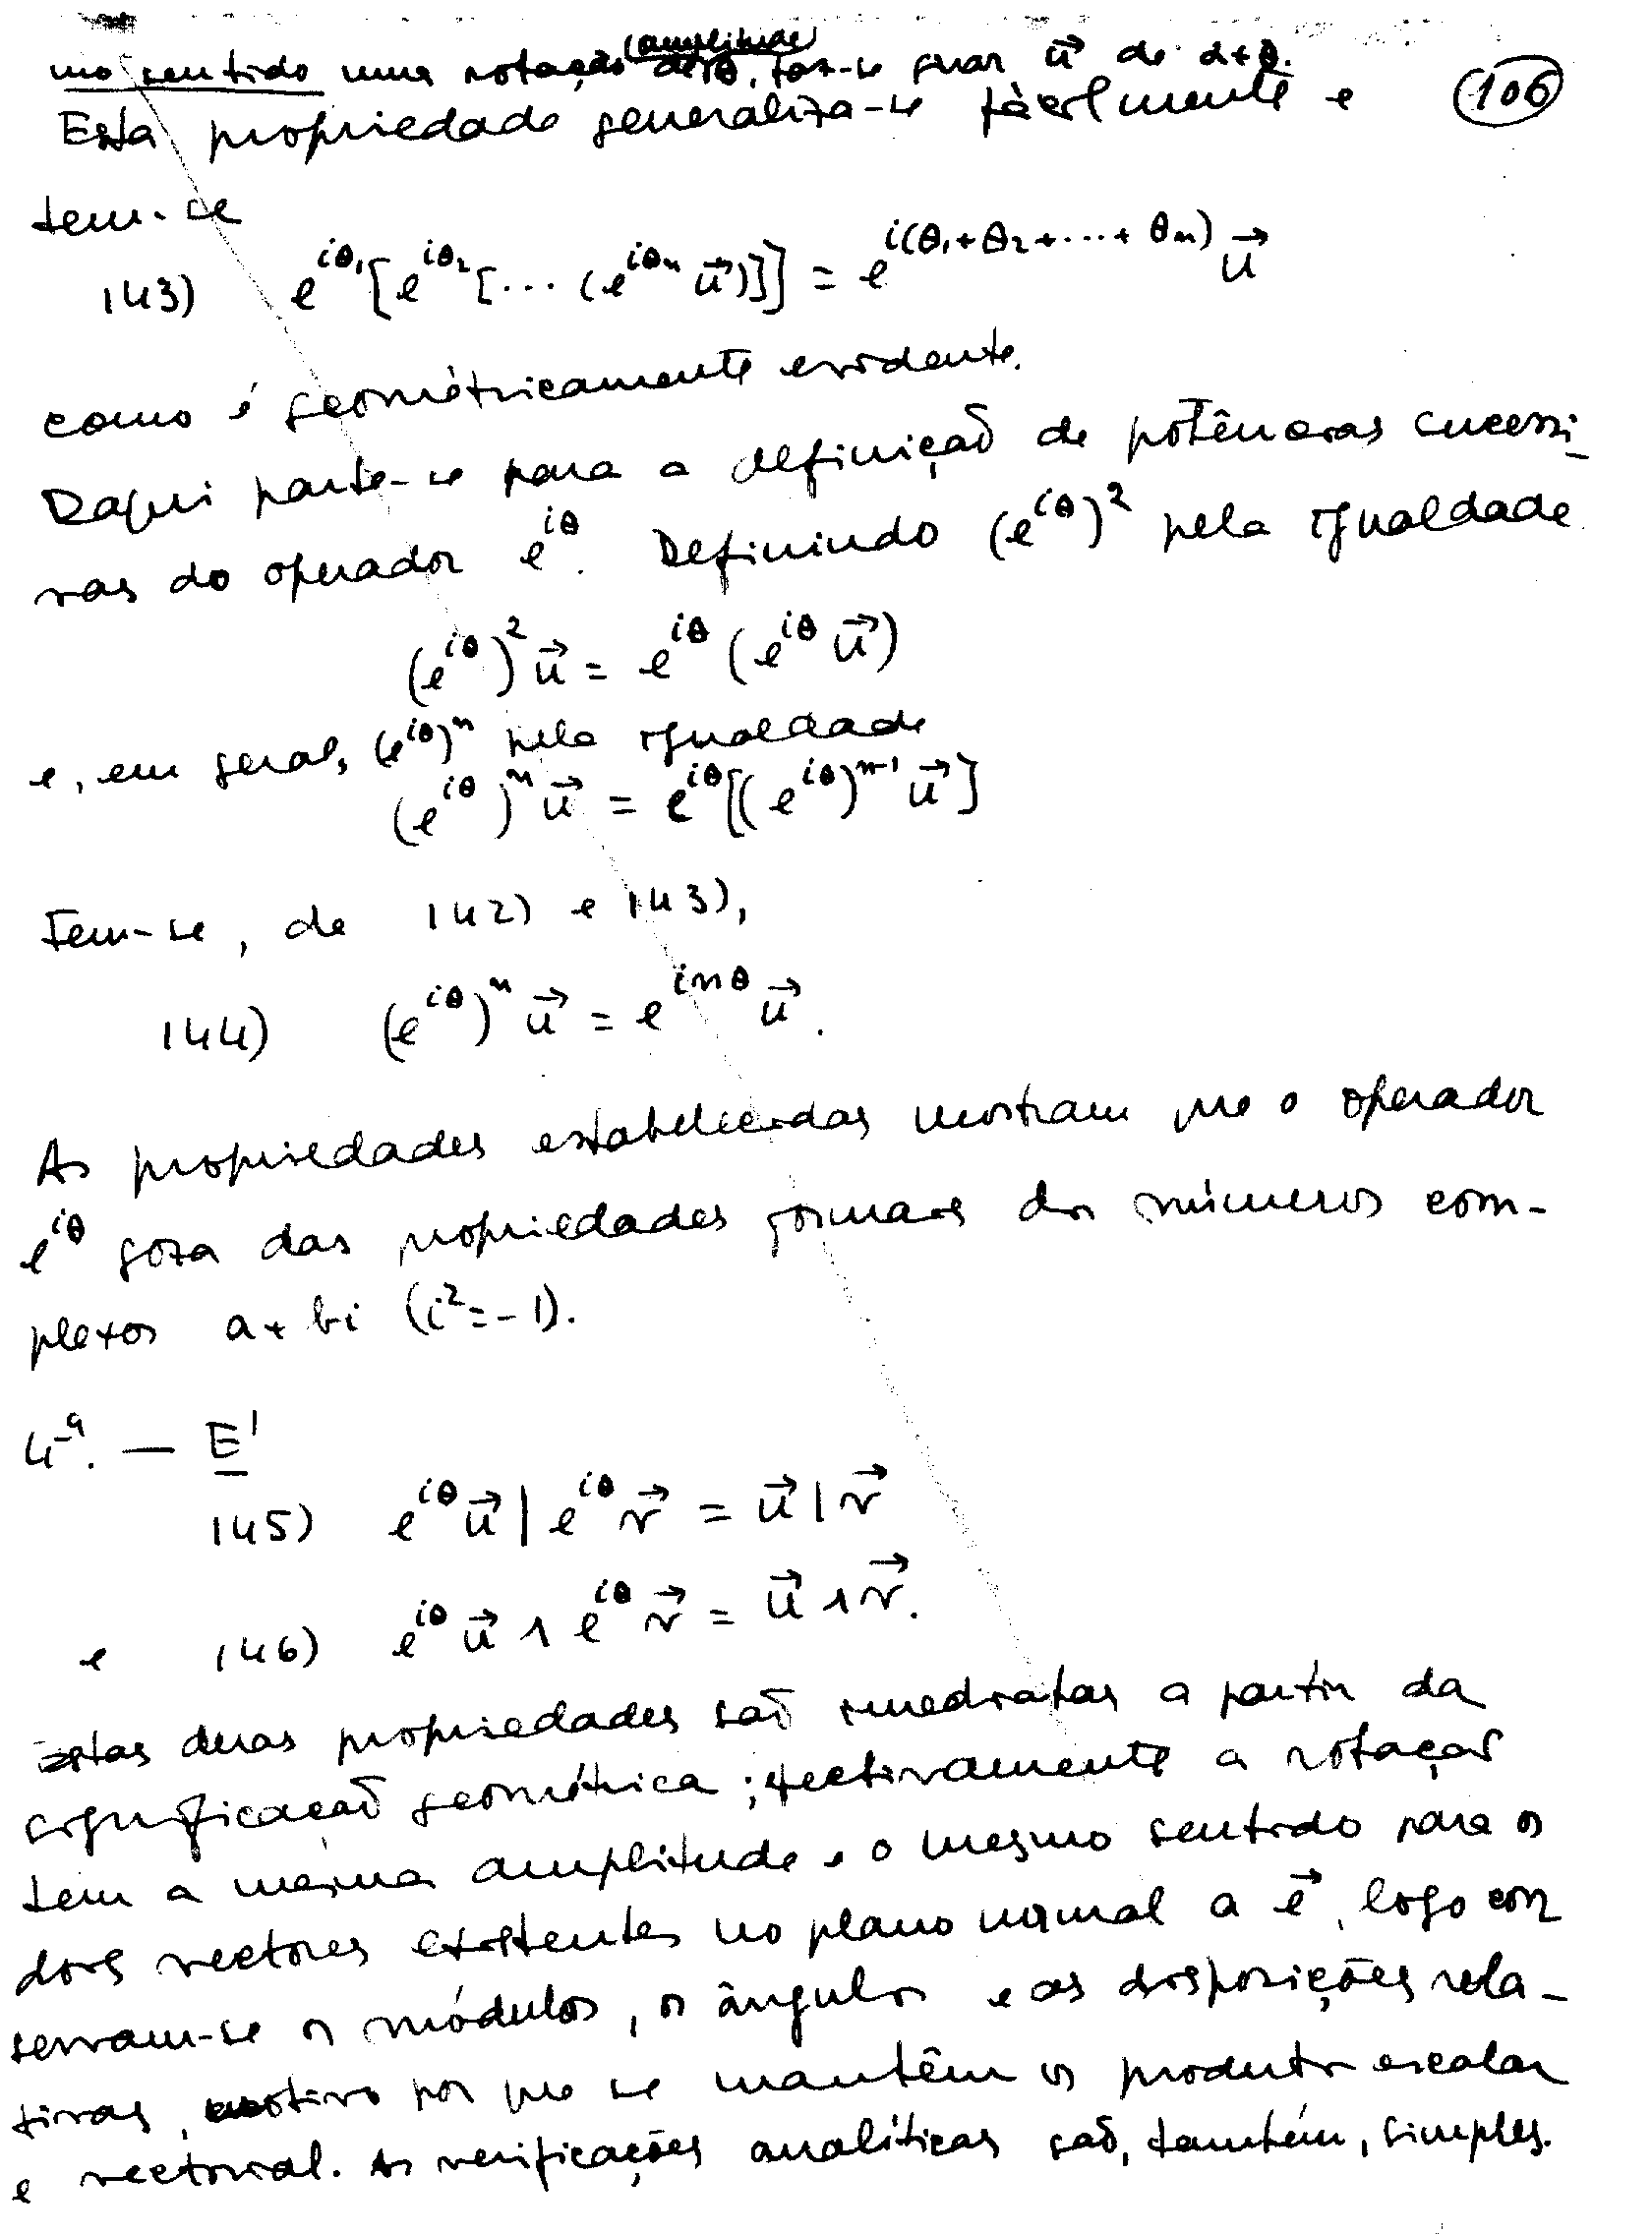 (amplitude)
mo sentido uma rotação de θ, faz-se girar u⃗ de α+θ.
Esta propriedade generaliza-se fàcilmente e (106)
tem-se
143) e^{iθ₁}[e^{iθ₂}[... (e^{iθₙ} u⃗)]] = e^{i(θ₁+θ₂+...+θₙ)} u⃗
como é geomètricamente evidente.
Daqui parte-se para a definição de potências sucessi-
vas do operador e^{iθ}. Definindo (e^{iθ})² pela igualdade
(e^{iθ})² u⃗ = e^{iθ} (e^{iθ} u⃗)
e, em geral, (e^{iθ})ⁿ pela igualdade
(e^{iθ})ⁿ u⃗ = e^{iθ}[(e^{iθ})^{n-1} u⃗]
Tem-se, de 142) e 143),
144) (e^{iθ})ⁿ u⃗ = e^{inθ} u⃗.
As propriedades estabelecidas mostram que o operador
e^{iθ} goza das propriedades formais dos números com-
plexos a+bi (i²=-1).
4ª. — E'
145) e^{iθ} u⃗ | e^{iθ} v⃗ = u⃗ | v⃗
e 146) e^{iθ} u⃗ ∧ e^{iθ} v⃗ = u⃗ ∧ v⃗.
Estas duas propriedades são imediatas a partir da
significação geométrica; efectivamente a rotação
tem a mesma amplitude e o mesmo sentido para os
dois vectores existentes no plano normal a e⃗, logo con
servam-se os módulos, os ângulos e as disposições rela-
tivas, motivo por que se mantêm os produtos escalar
e vectorial. As verificações analíticas são, também, simples.